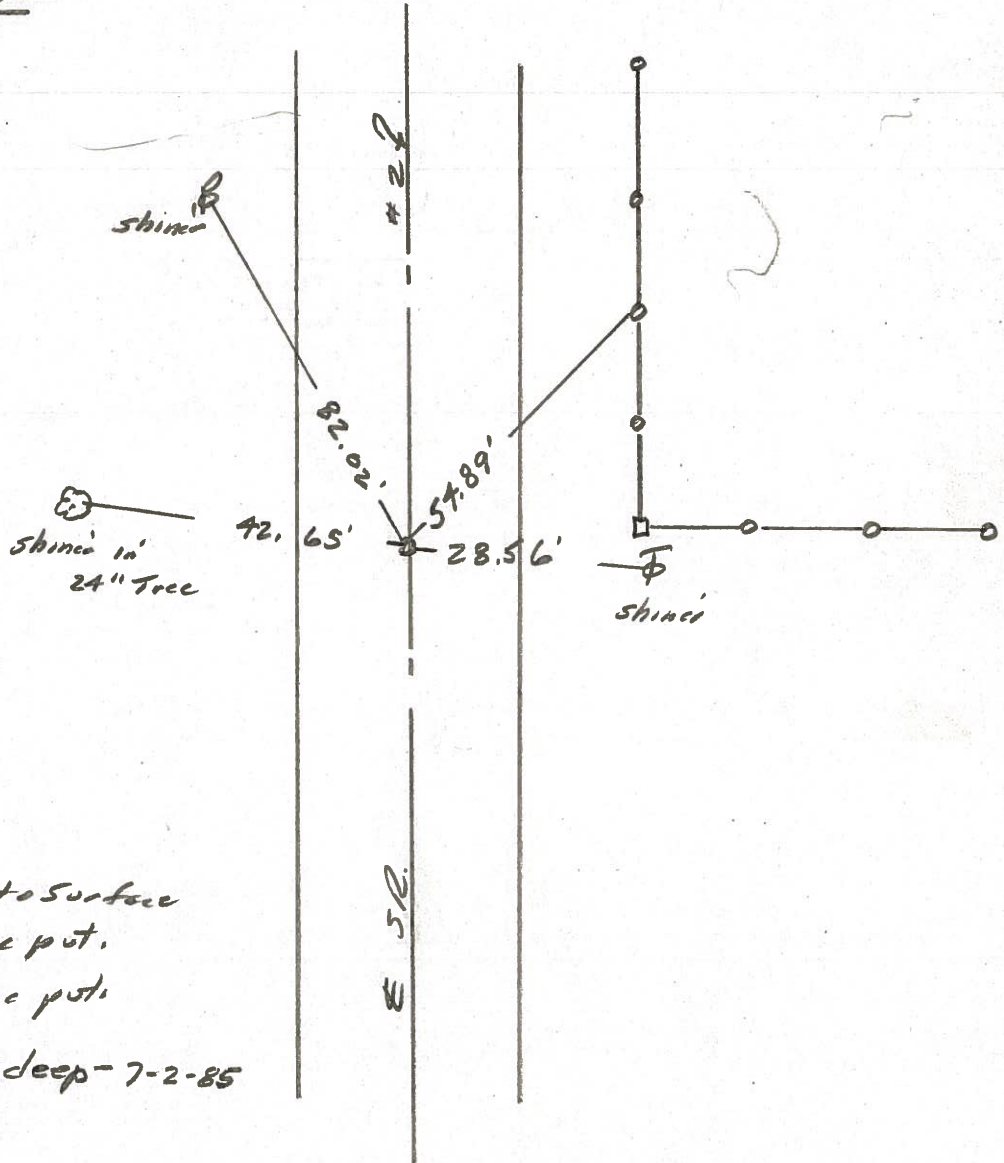 # 2
shiner
82.02'
54.89'
42.65'
28.56'
shiner in
24" Tree
shiner
S.R.
to Surface
put.
put.
deep - 7-2-85